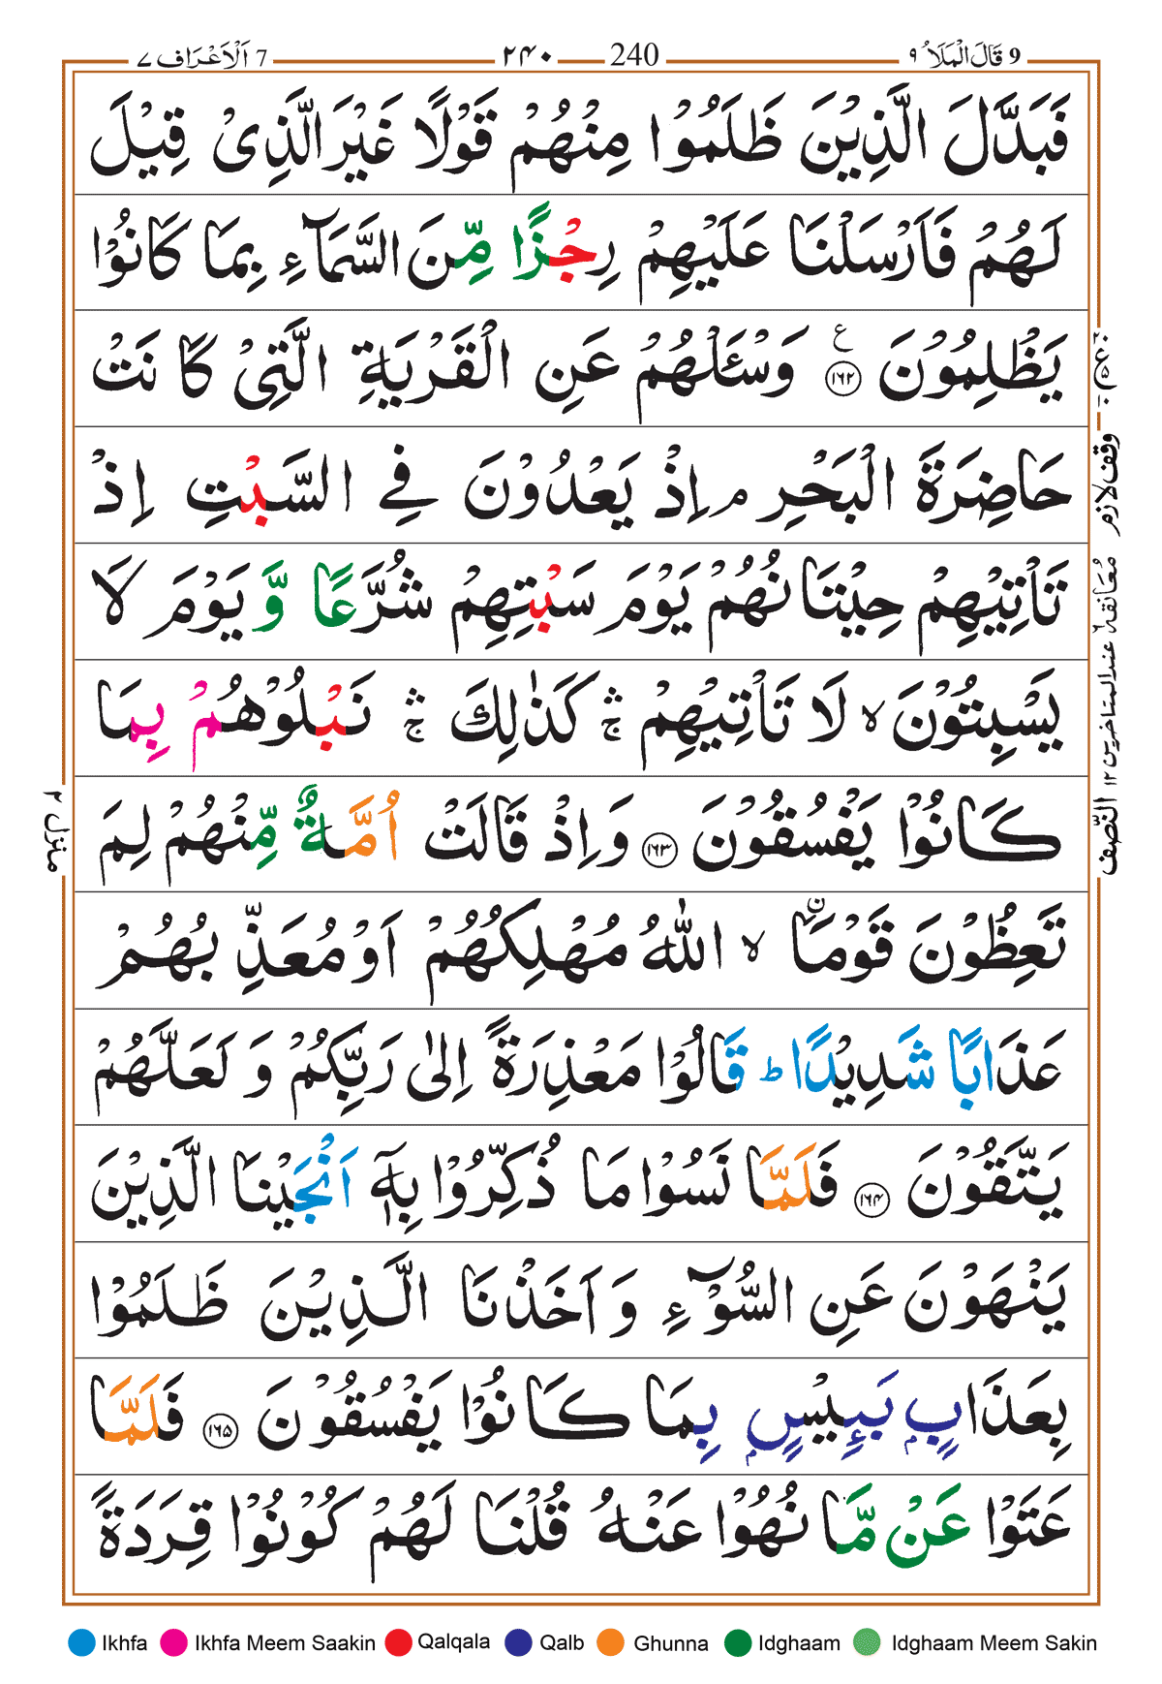 9 قَالَ الْمَلَاُ ٩ 240 ٢٤٠ 7 اَلْاَعْرَاف ٧
فَبَدَّلَ الَّذِيْنَ ظَلَمُوْا مِنْهُمْ قَوْلًا غَيْرَ الَّذِىْ قِيْلَ
لَهُمْ فَاَرْسَلْنَا عَلَيْهِمْ رِجْزًا مِّنَ السَّمَآءِ بِمَا كَانُوْا
يَظْلِمُوْنَ ۝١٦٢ ع وَسْئَلْهُمْ عَنِ الْقَرْيَةِ الَّتِىْ كَانَتْ
حَاضِرَةَ الْبَحْرِ ۘ اِذْ يَعْدُوْنَ فِى السَّبْتِ اِذْ
تَاْتِيْهِمْ حِيْتَانُهُمْ يَوْمَ سَبْتِهِمْ شُرَّعًا وَّ يَوْمَ لَا
يَسْبِتُوْنَ ۙ لَا تَاْتِيْهِمْ ۛۚ كَذٰلِكَ ۛۚ نَبْلُوْهُمْ بِمَا
كَانُوْا يَفْسُقُوْنَ ۝١٦٣ وَاِذْ قَالَتْ اُمَّةٌ مِّنْهُمْ لِمَ
تَعِظُوْنَ قَوْمَاۨ ۙ اللّٰهُ مُهْلِكُهُمْ اَوْ مُعَذِّبُهُمْ
عَذَابًا شَدِيْدًا ؕ قَالُوْا مَعْذِرَةً اِلٰى رَبِّكُمْ وَ لَعَلَّهُمْ
يَتَّقُوْنَ ۝١٦٤ فَلَمَّا نَسُوْا مَا ذُكِّرُوْا بِهٖۤ اَنْجَيْنَا الَّذِيْنَ
يَنْهَوْنَ عَنِ السُّوْٓءِ وَاَخَذْنَا الَّذِيْنَ ظَلَمُوْا
بِعَذَابٍۭ بَـِٕيْسٍۭ بِمَا كَانُوْا يَفْسُقُوْنَ ۝١٦٥ فَلَمَّا
عَتَوْا عَنْ مَّا نُهُوْا عَنْهُ قُلْنَا لَهُمْ كُوْنُوْا قِرَدَةً
وقف لازم
معانقة عند المتاخرين ١٢
النصف
منزل ٢
Ikhfa Ikhfa Meem Saakin Qalqala Qalb Ghunna Idghaam Idghaam Meem Sakin